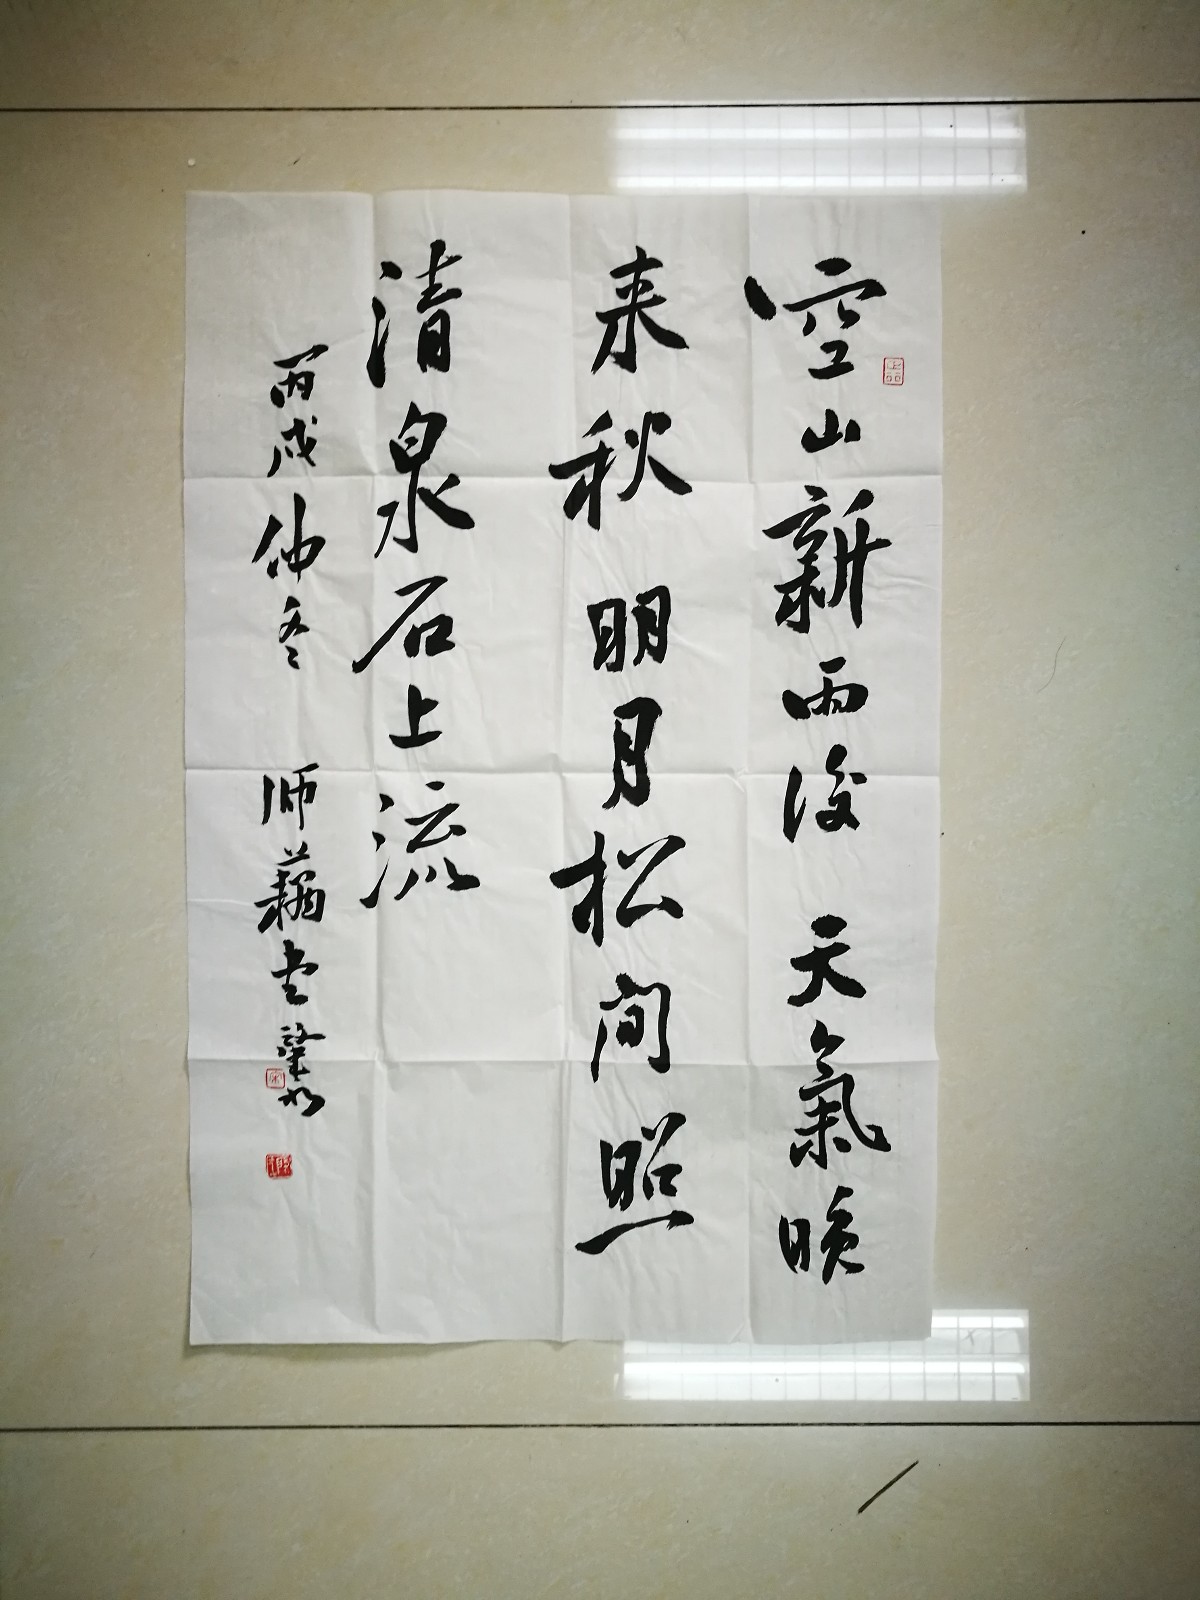 空山新雨後天氣晚
来秋明月松间照
清泉石上流
丙戌仲冬 师藕堂肇